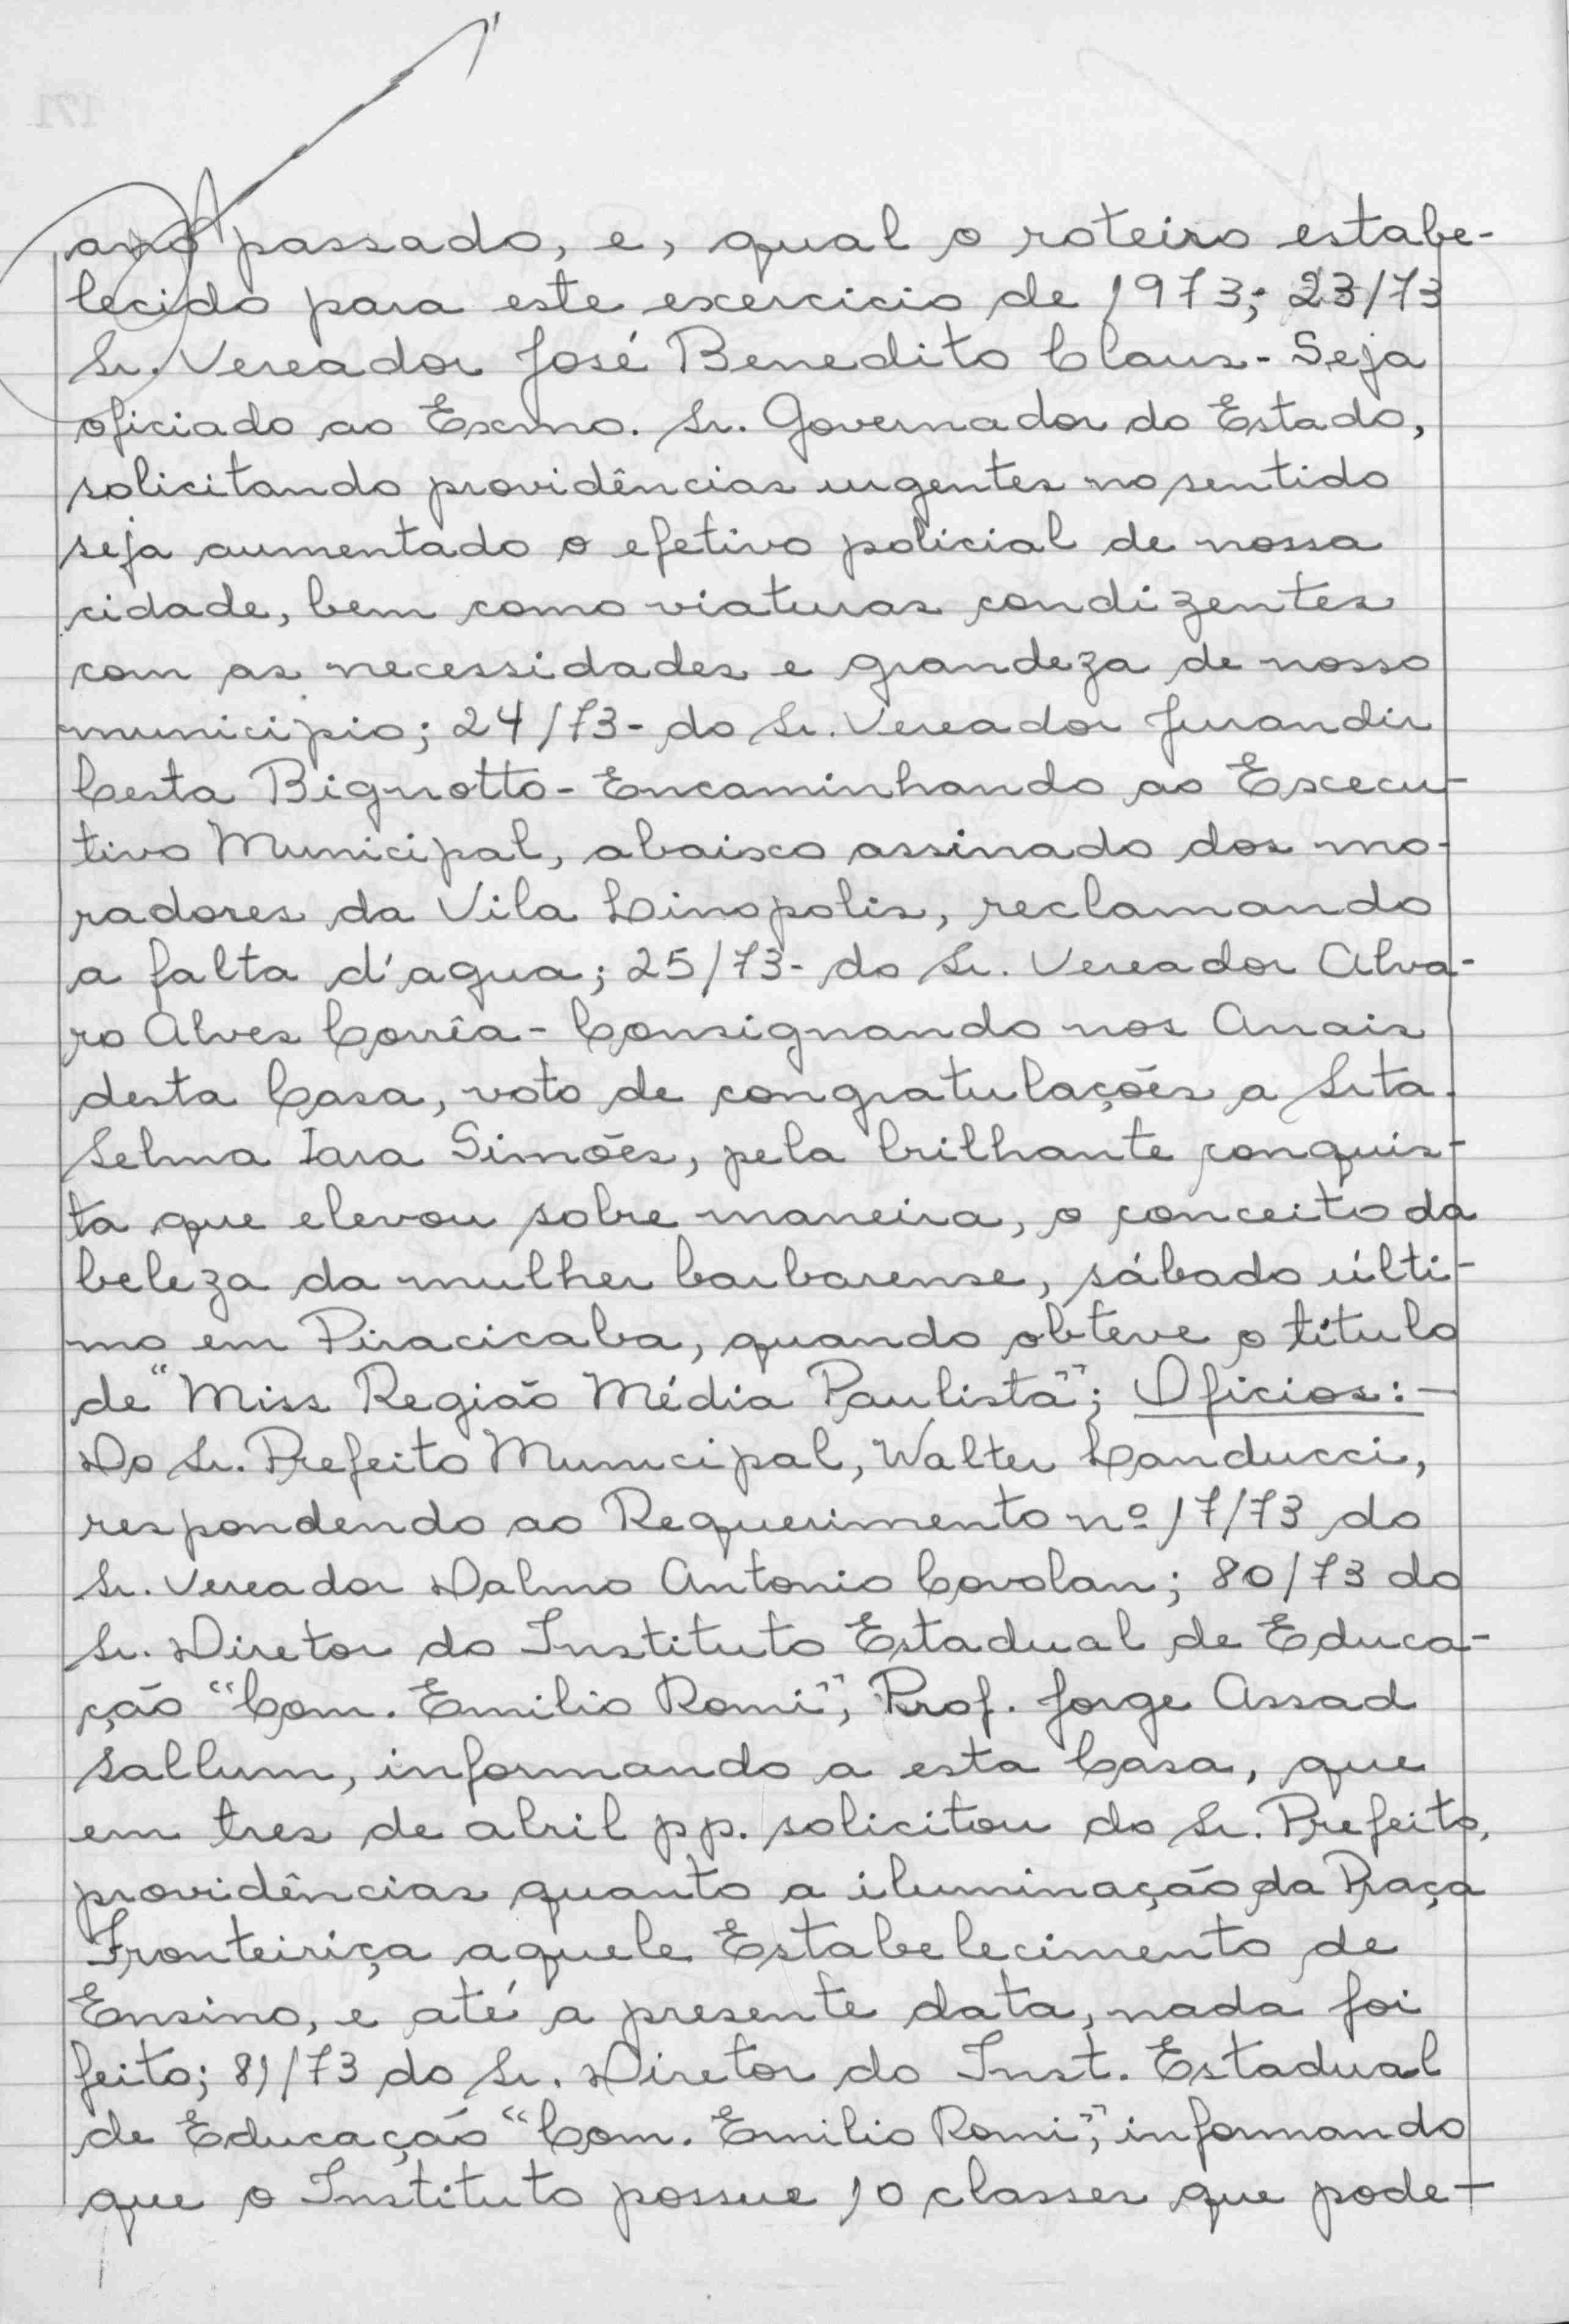 ano passado, e, qual o roteiro estabe-
lecido para este exercicio de 1973; 23/73
Sr. Vereador José Benedito Claus - Seja
oficiado ao Exmo. Sr. Governador do Estado,
solicitando providências urgentes no sentido
seja aumentado o efetivo policial de nossa
cidade, bem como viaturas condizentes
com as necessidades e grandeza de nosso
municipio; 24/73 - do Sr. Vereador Jurandir
Cesta Bignotto - Encaminhando ao Execu-
tivo Municipal, abaixo assinado dos mo-
radores da Vila Linopolis, reclamando
a falta d'agua; 25/73 - do Sr. Vereador Alva-
ro Alves Corrêa - Consignando nos Anais
desta Casa, voto de congratulações a Srta.
Selma Iara Simões, pela brilhante conquis-
ta que elevou sobre maneira, o conceito da
beleza da mulher barbarense, sábado últi-
mo em Piracicaba, quando obteve o título
de "Miss Região Média Paulista"; Oficios:-
Do Sr. Prefeito Municipal, Walter Landucci,
respondendo ao Requerimento nº 17/73 do
Sr. Vereador Dalmo Antonio Covolan; 80/73 do
Sr. Diretor do Instituto Estadual de Educa-
ção "Com. Emilio Romi", Prof. Jorge Assad
Sallum, informando a esta Casa, que
em tres de abril pp. solicitou do Sr. Prefeito,
providências quanto a iluminação da Praça
Fronteiriça aquele Estabelecimento de
Ensino, e até a presente data, nada foi
feito; 81/73 do Sr. Diretor do Inst. Estadual
de Educação "Com. Emilio Romi", informando
que o Instituto possue 10 classes que pode-